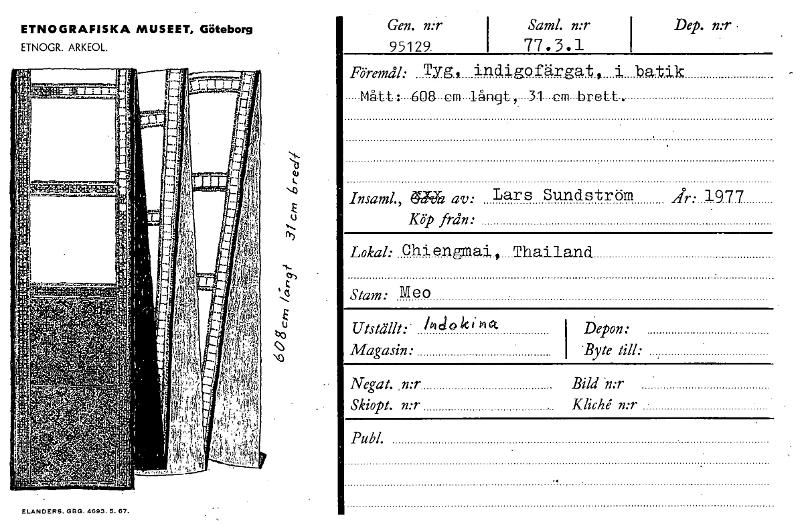 ETNOGRAFISKA MUSEET, Göteborg
ETNOGR. ARKEOL.
608 cm långt 31 cm bredt
ELANDERS. GBG. 4693. 5. 67.
Gen. n:r Saml. n:r Dep. n:r
95129 77.3.1
Föremål: Tyg, indigofärgat, i batik
Mått: 608 cm långt, 31 cm brett.
Insaml., Gåva av: Lars Sundström År: 1977
Köp från:
Lokal: Chiengmai, Thailand
Stam: Meo
Utställt: Indokina Depon:
Magasin: Byte till:
Negat. n:r Bild n:r
Skiopt. n:r Kliché n:r
Publ.